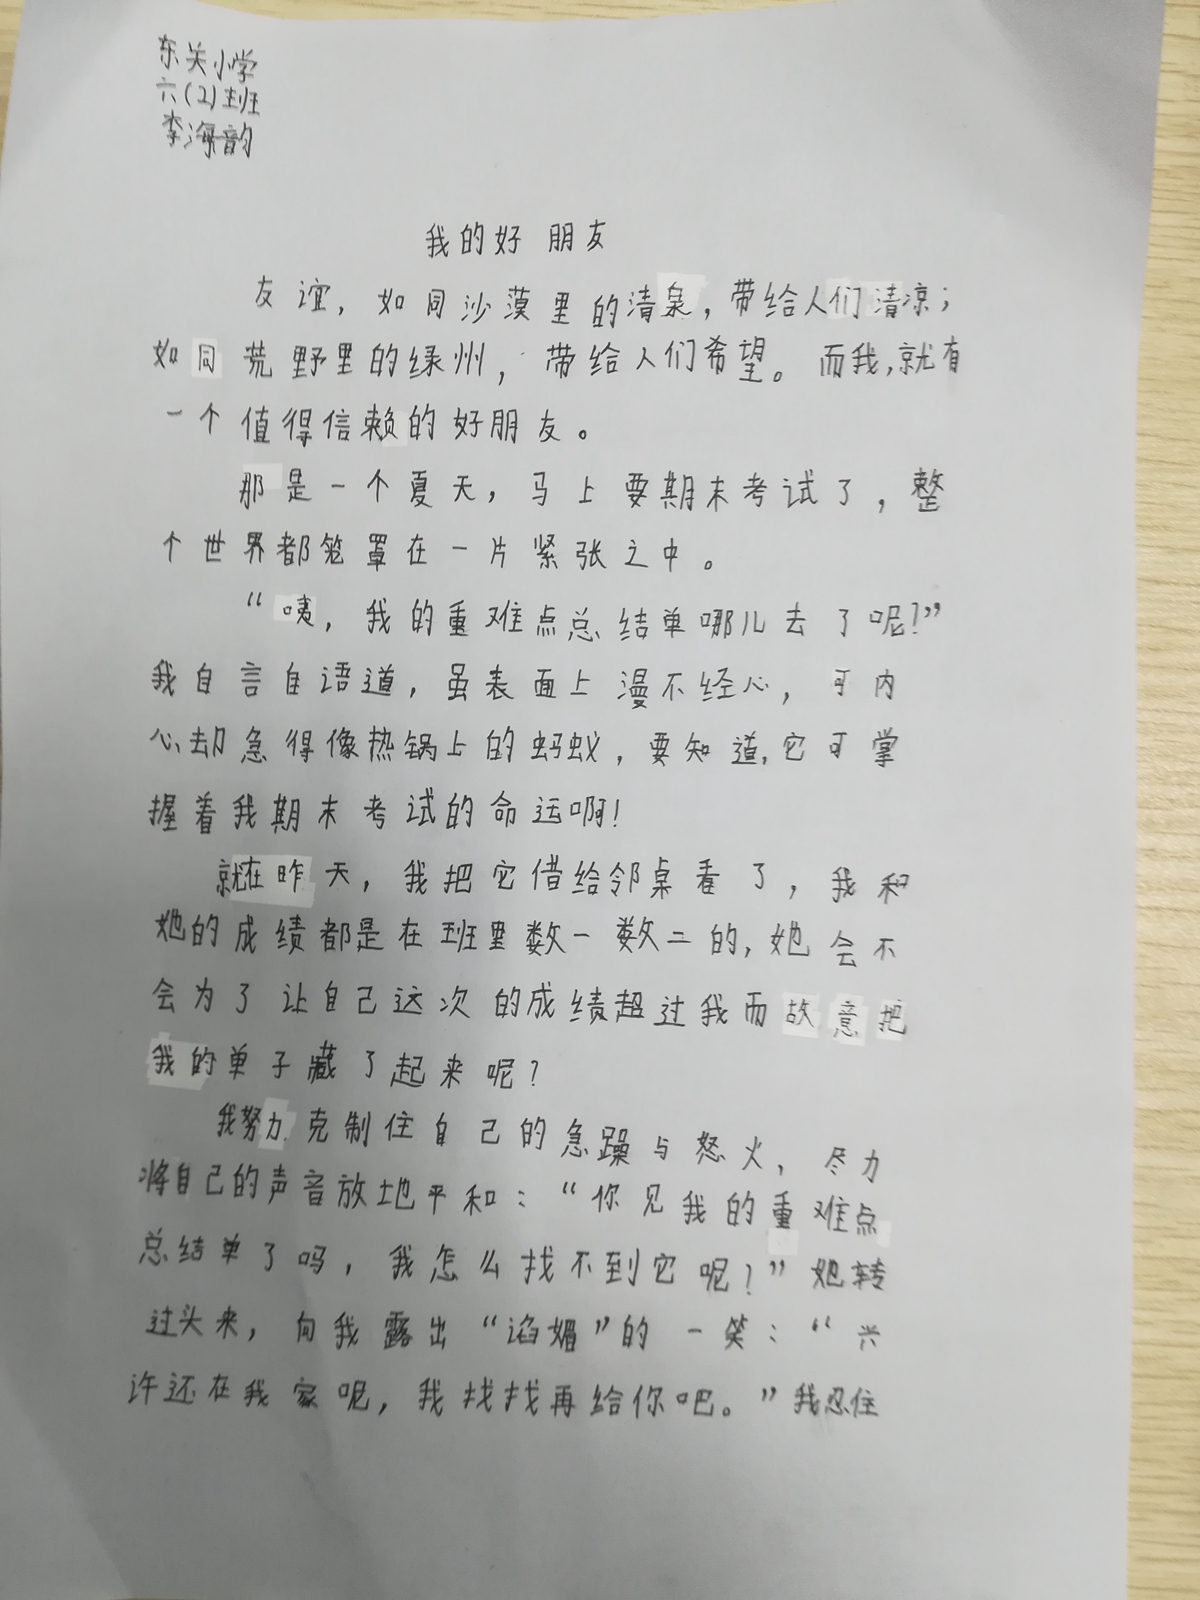 东关小学
六(2)班
李海韵
我的好朋友
友谊，如同沙漠里的清泉，带给人们清凉；
如同荒野里的绿州，带给人们希望。而我，就有
一个值得信赖的好朋友。
那是一个夏天，马上要期末考试了，整
个世界都笼罩在一片紧张之中。
“咦，我的重难点总结单哪儿去了呢？”
我自言自语道，虽表面上漫不经心，可内
心却急得像热锅上的蚂蚁，要知道，它可掌
握着我期末考试的命运啊！
就在昨天，我把它借给邻桌看了，我和
她的成绩都是在班里数一数二的，她会不
会为了让自己这次的成绩超过我而故意把
我的单子藏了起来呢？
我努力克制住自己的急躁与怒火，尽力
将自己的声音放地平和：“你见我的重难点
总结单了吗，我怎么找不到它呢？”她转
过头来，向我露出“谄媚”的一笑：“兴
许还在我家呢，我找找再给你吧。”我忍住